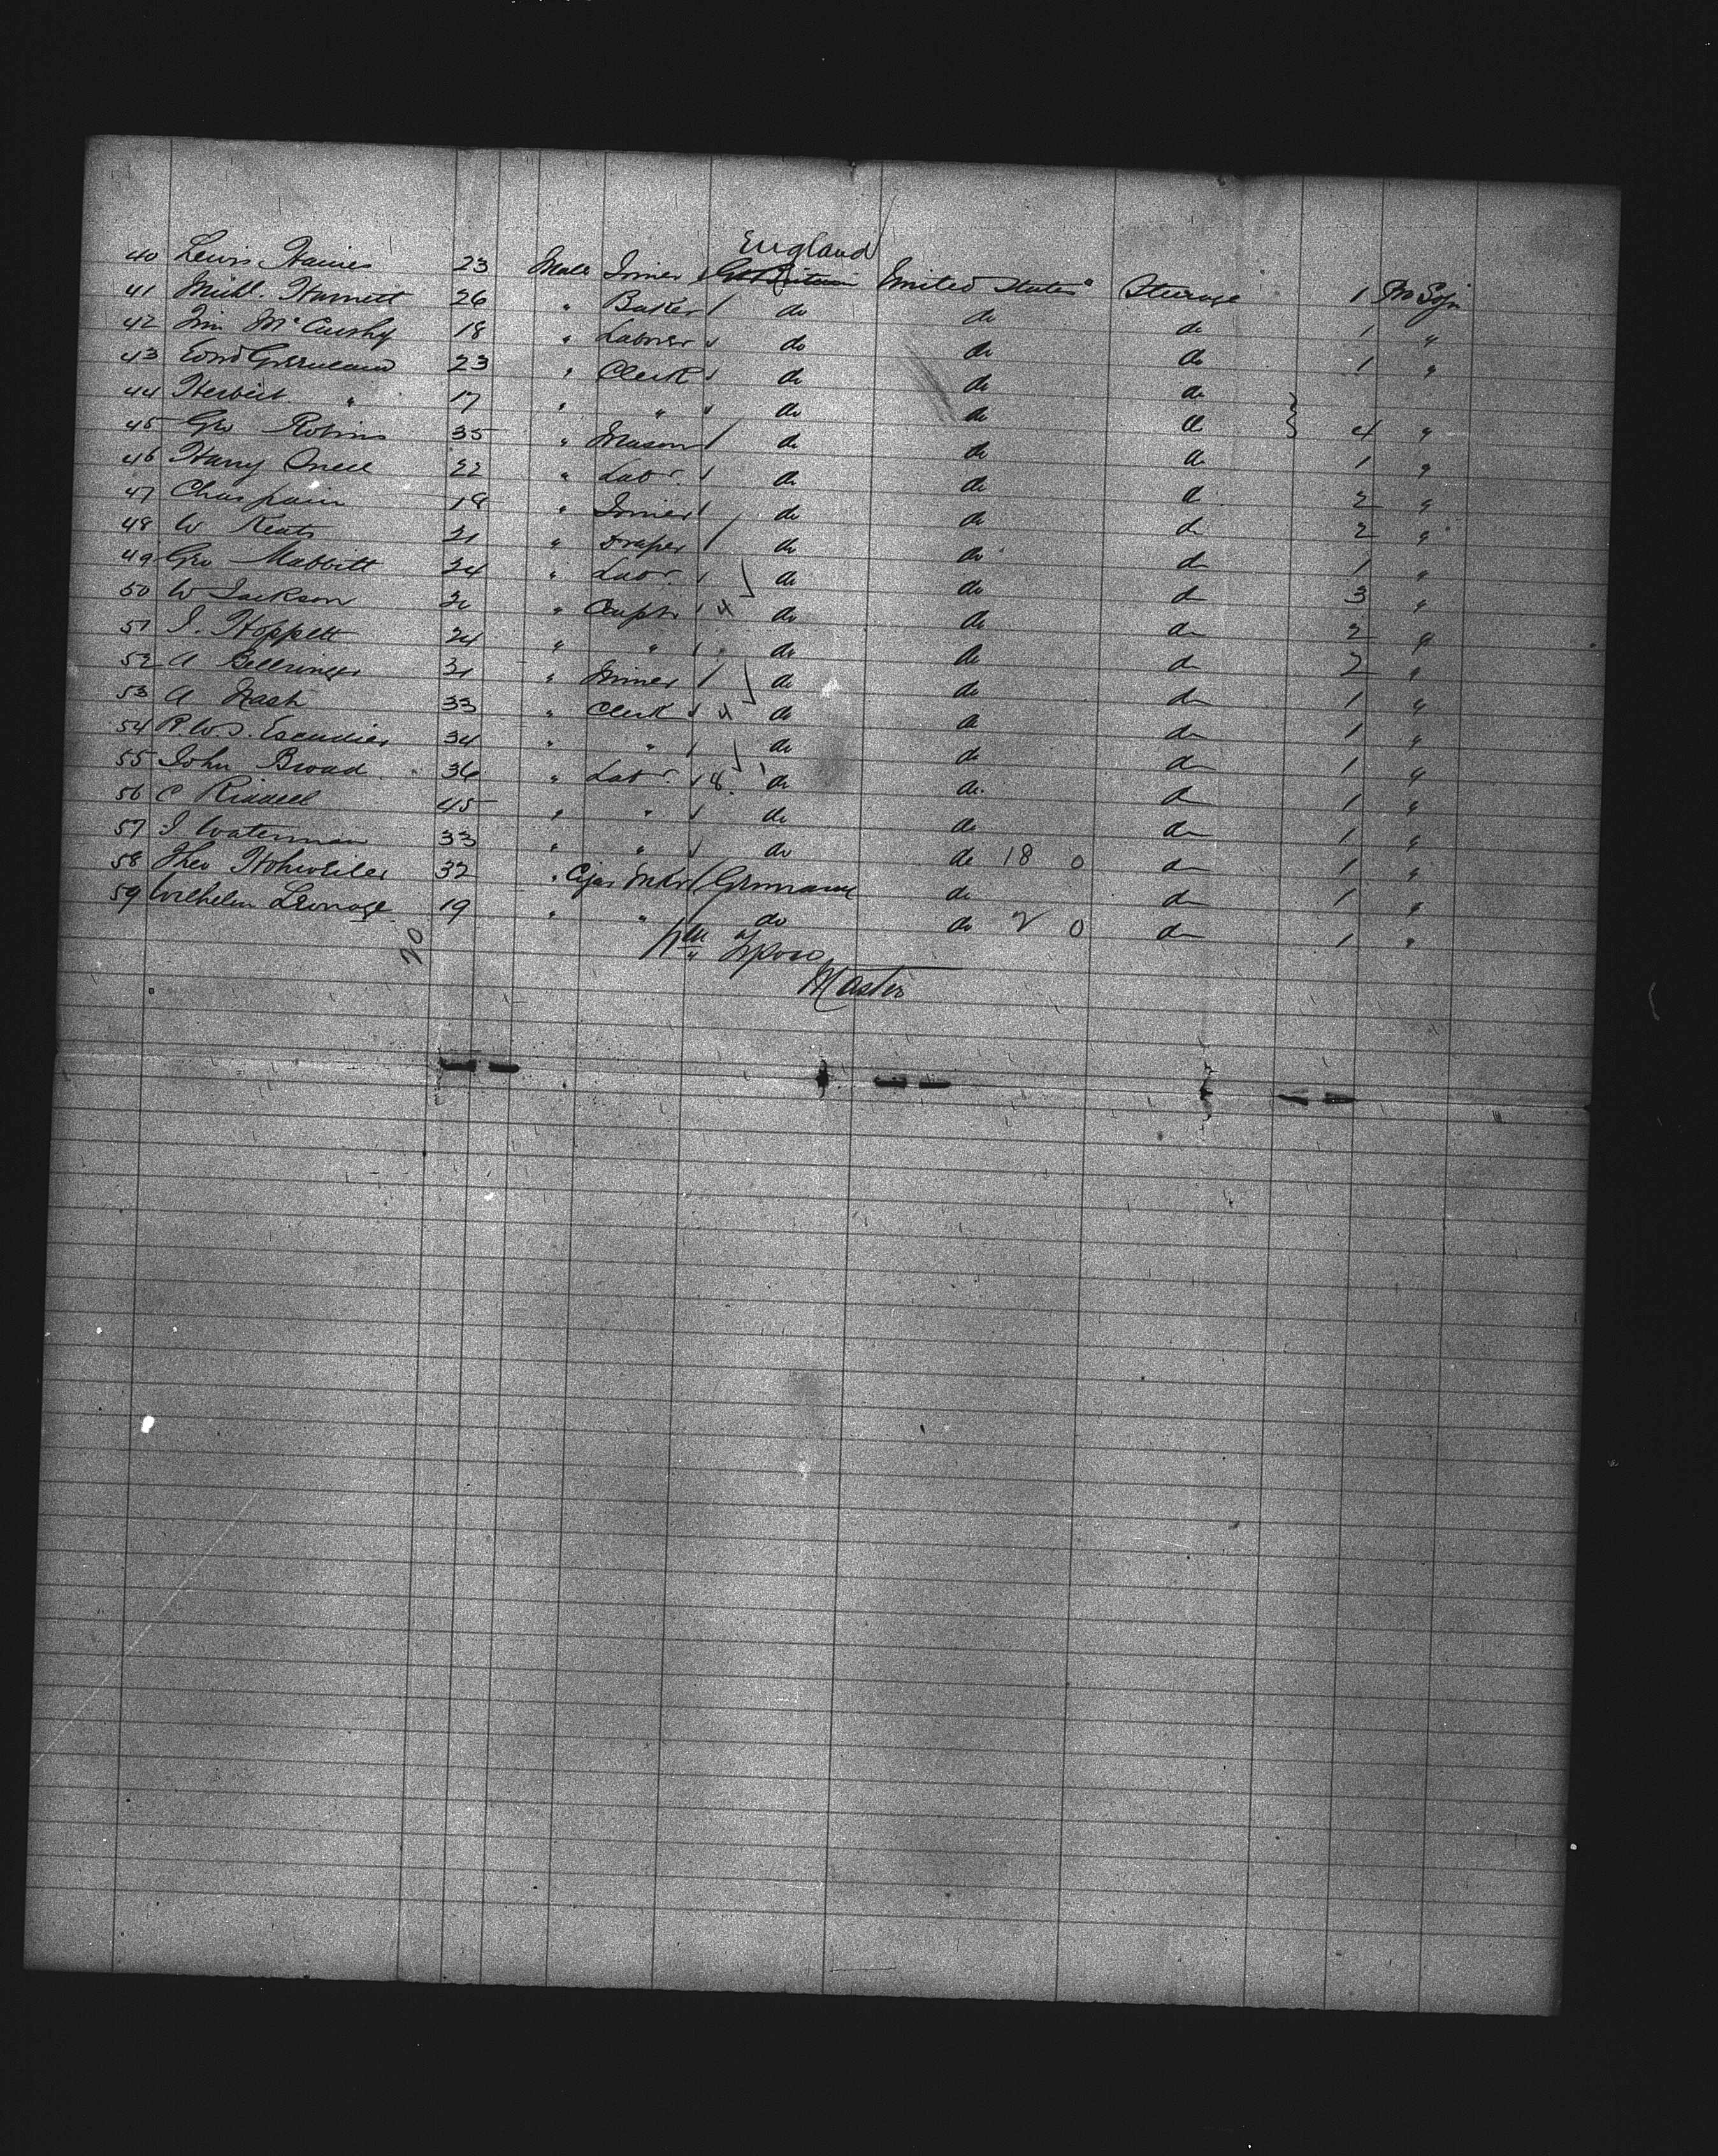 England
40 Lewis Haines 23 Male Joiner Gt Britain United States Steerage 1 No Sojn
41 Michl. Harnett 26 " Baker do do do 1 "
42 Jim McCarthy 18 " Laborer do do do 1 "
43 Edwd 23 " Clerk do do do
44 Herbert " 17 " " do do do 4 "
45 Geo Robins 35 " Mason do do do 1 "
46 Harry Oneil 22 " Labr. do do do 2 "
47 Chas pain 18 " Joiner do do do 2 "
48 W Keats 21 " Draper do do do 1 "
49 Geo Mabbitt 24 " Labr. do do do 3 "
50 W Jackson " Carptr 4 do do do 2 "
51 J. Hoppett 24 " " " do do do 2 "
52 A Bellringer 31 " do do do 1 "
53 A Nash 33 " Clerk 4 do do do 1 "
54 R W J. Escudier 34 " " do do do 1 "
55 John Broad 36 " Labr. 8 do do do 1 "
56 C Riddell 45 " " do do do 1 "
57 J Waterman 33 " " do do 18 0 do 1 "
58 Theo 32 " Cigar Mkr Germany do do 1 "
59 Wilhelm 19 " " do do 2 0 do 1 "
20
Master